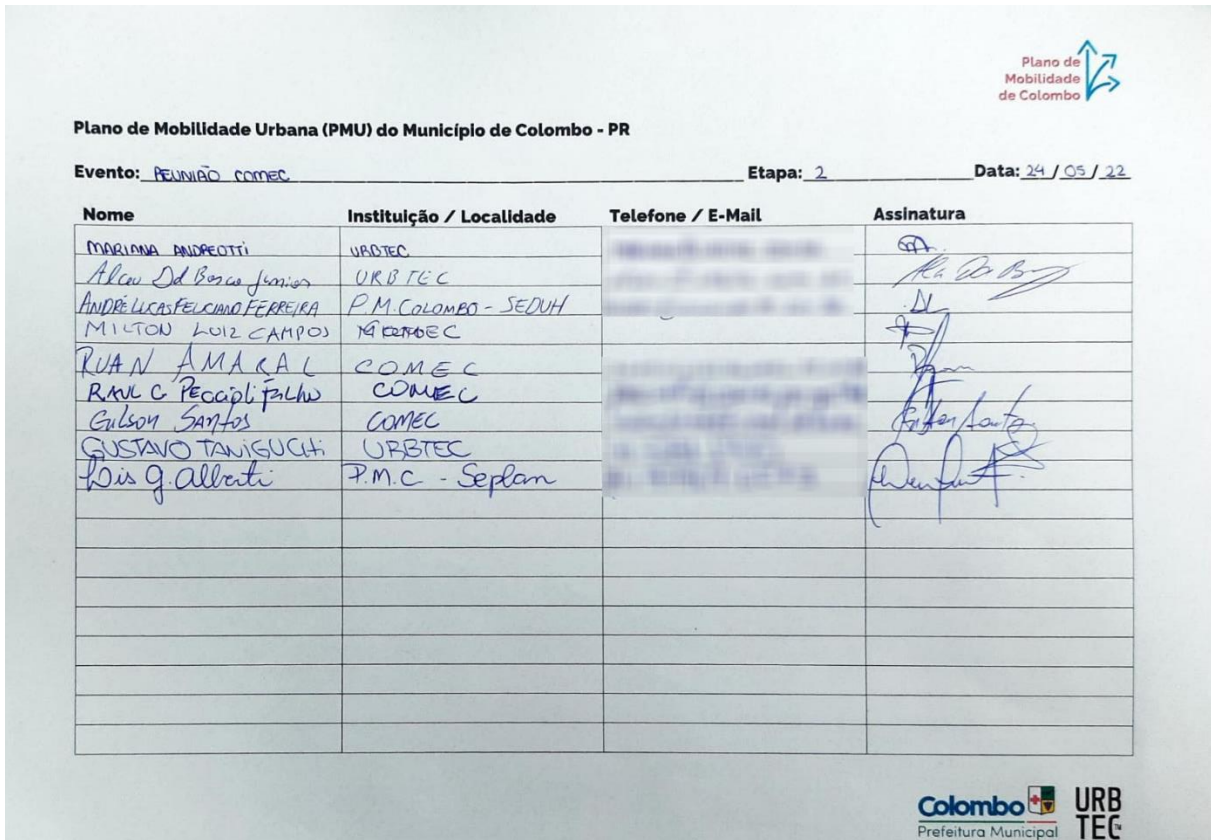 Plano de
Mobilidade
de Colombo
Plano de Mobilidade Urbana (PMU) do Município de Colombo - PR
Evento: REUNIÃO COMEC Etapa: 2 Data: 24 / 05 / 22
Nome Instituição / Localidade Telefone / E-Mail Assinatura
MARIANA ANDREOTTI URBTEC
Alceu Dal Bosco Junior URBTEC
ANDRÉ LUCAS FELICIANO FERREIRA P.M. COLOMBO - SEDUH
MILTON LUIZ CAMPOS
RUAN AMARAL COMEC
RAUL C. Filho COMEC
Gilson Santos COMEC
GUSTAVO TANIGUCHI URBTEC
G. Alberti P.M.C - Seplan
Colombo
Prefeitura Municipal
URB
TEC